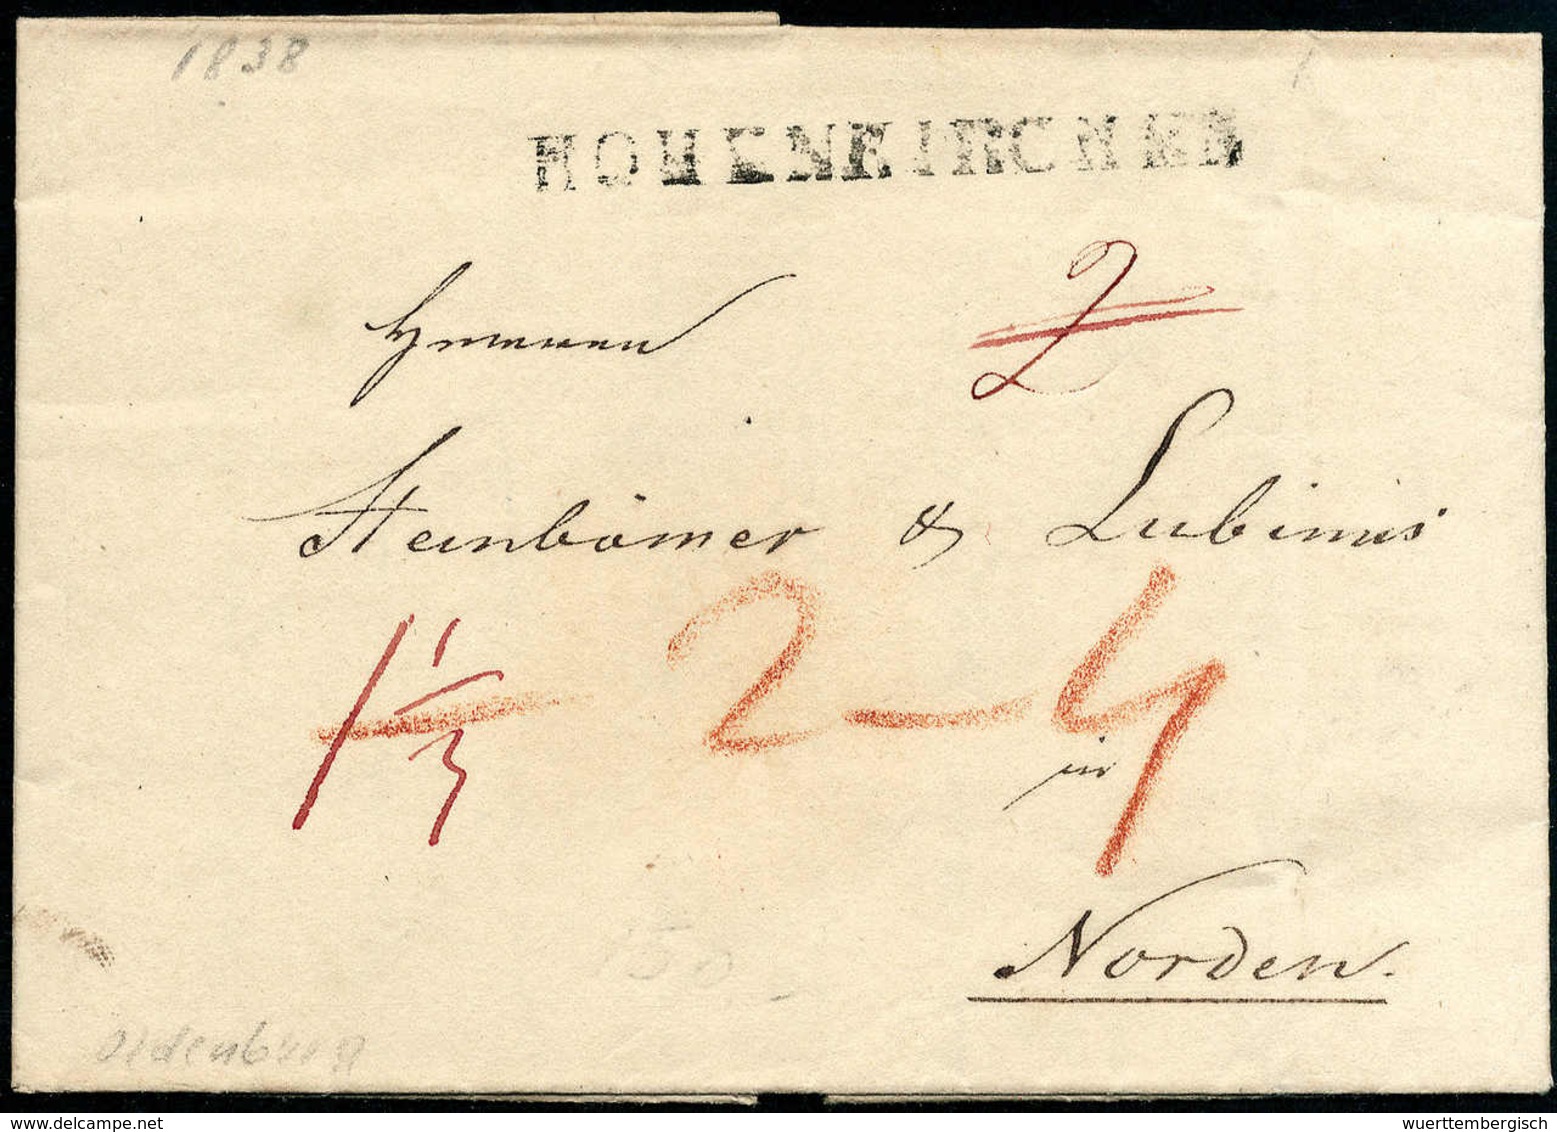 1838
HOHENKIRCHEN
2
Herrn
Steinbömer & Lubinus
1 1/3
2 - 4
in
Norden.
150
Oldenburg
www.delcampe.net
wuerttembergisch